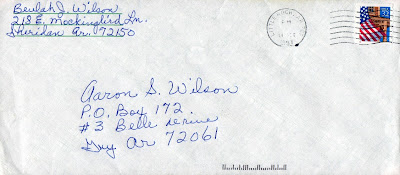 Beulah J. Wilson
218 E. Mockingbird Ln.
Sheridan Ar. 72150
PM
32
Aaron S. Wilson
P.O. Box 172
#3 Belle
Guy Ar 72061